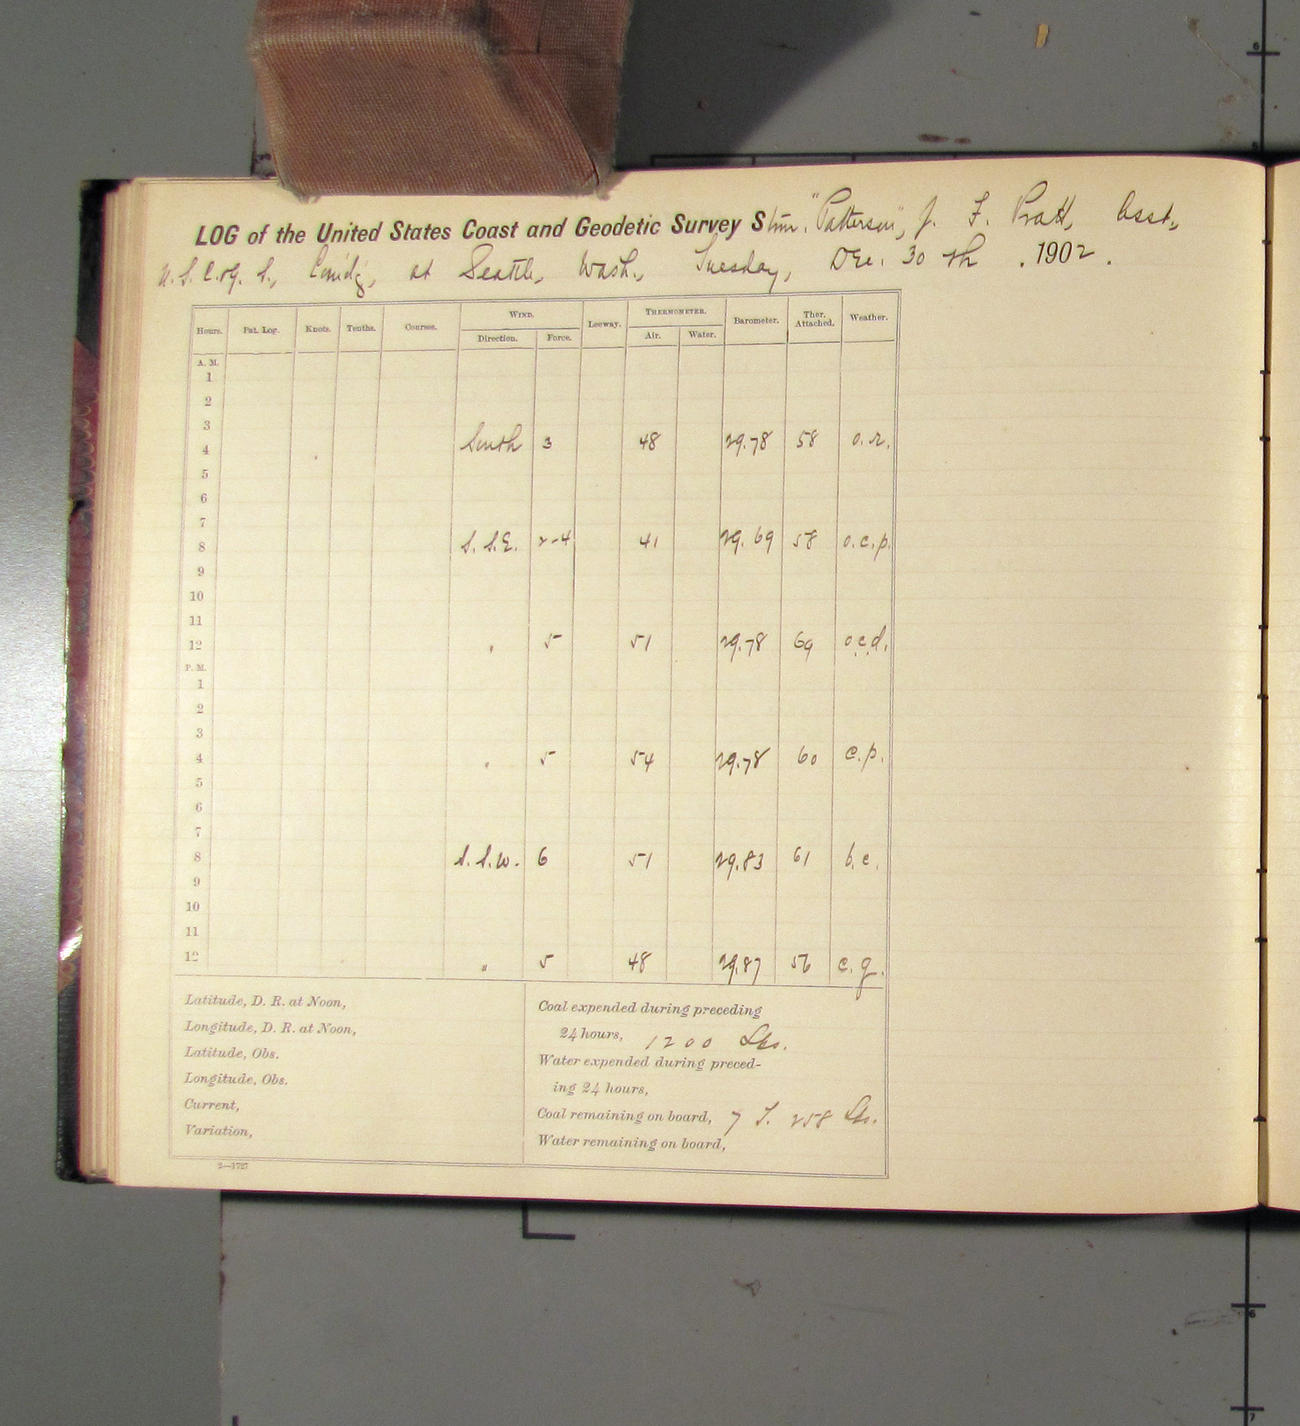 LOG of the United States Coast and Geodetic Survey Stmr. "Patterson", J. F. Pratt, Asst.,
U. S. C. & G. S., Comd'g, at Seattle, Wash., Tuesday, Dec. 30 th . 1902.
Hours. Pat. Log. Knots. Tenths. Courses. WIND. Leeway. THERMOMETER. Barometer. Ther. Attached. Weather.
Direction. Force. Air. Water.
A. M.
1
2
3
4 South 3 48 29.78 58 o.r.
5
6
7
8 S. S.E. 2-4 41 29.69 58 o.c.p.
9
10
11
12 " 5 51 29.78 69 o.c.d.
P. M.
1
2
3
4 " 5 54 29.78 60 c.p.
5
6
7
8 S.S.W. 6 51 29.83 61 b.c.
9
10
11
12 " 5 48 29.87 56 c.q.
Latitude, D. R. at Noon,
Longitude, D. R. at Noon,
Latitude, Obs.
Longitude, Obs.
Current,
Variation,
2—1727
Coal expended during preceding
24 hours, 1200 Lbs.
Water expended during preced-
ing 24 hours,
Coal remaining on board, 7 T. 258 Lbs.
Water remaining on board,
6
6
7